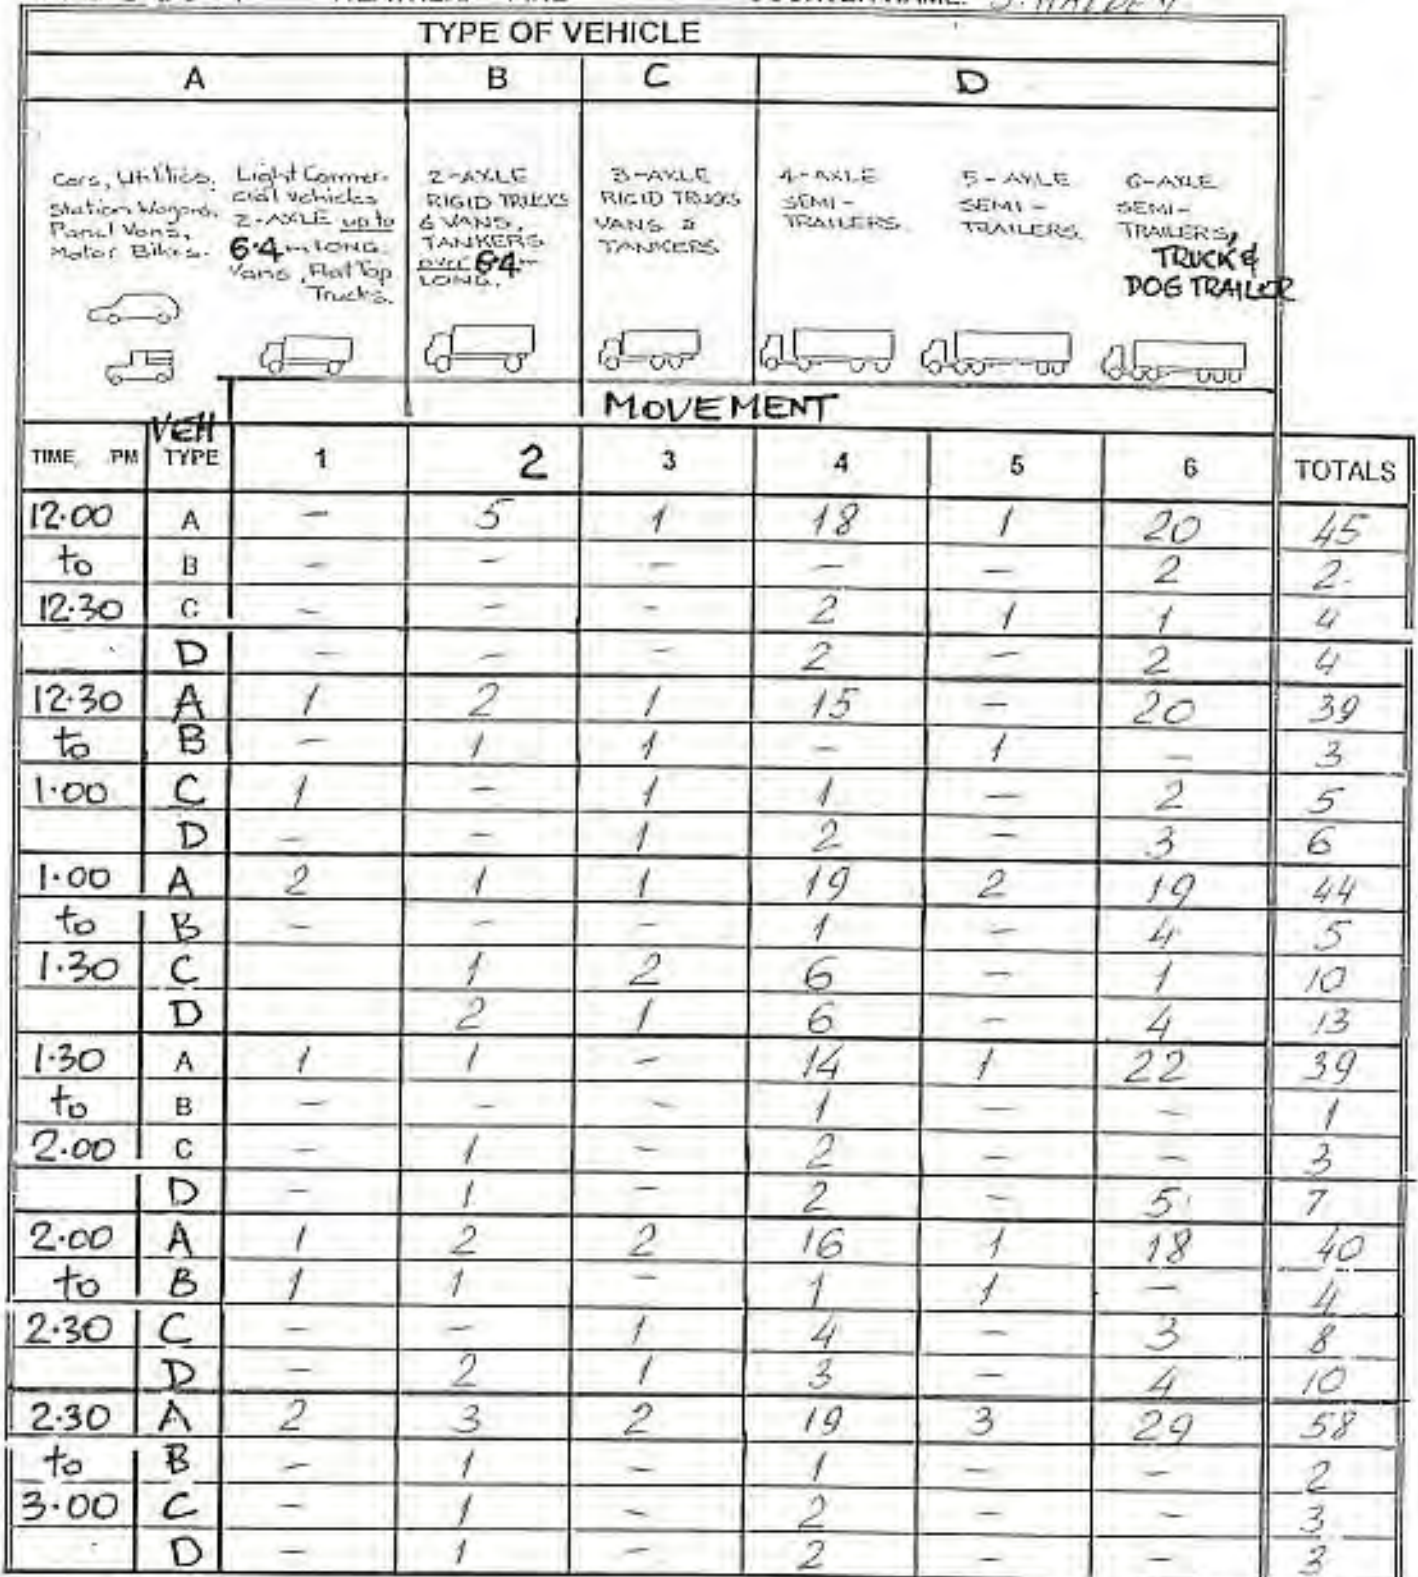 WEATHER: FINE
COUNTER NAME:
TYPE OF VEHICLE
A B C D
Cars, Utilities, Station Wagons, Panel Vans, Motor Bikes.
Light Commercial Vehicles 2-AXLE up to 6.4m LONG. Vans, Flat Top Trucks.
2-AXLE RIGID TRUCKS & VANS, TANKERS over 6.4m LONG.
3-AXLE RIGID TRUCKS VANS & TANKERS
4-AXLE SEMI-TRAILERS.
5-AXLE SEMI-TRAILERS.
6-AXLE SEMI-TRAILERS, TRUCK & DOG TRAILER
MOVEMENT
TIME, PM VEH TYPE 1 2 3 4 5 6 TOTALS
12.00 A - 5 1 18 1 20 45
to B - - - - - 2 2
12.30 C - - - 2 1 1 4
D - - - 2 - 2 4
12.30 A 1 2 1 15 - 20 39
to B - 1 1 - 1 - 3
1.00 C 1 - 1 1 - 2 5
D - - 1 2 - 3 6
1.00 A 2 1 1 19 2 19 44
to B - - - 1 - 4 5
1.30 C 1 2 6 - 1 10
D 2 1 6 - 4 13
1.30 A 1 1 - 14 1 22 39
to B - - - 1 - - 1
2.00 C - 1 - 2 - - 3
D - 1 - 2 - 5 7
2.00 A 1 2 2 16 1 18 40
to B 1 1 - 1 1 - 4
2.30 C - - 1 4 - 3 8
D - 2 1 3 - 4 10
2.30 A 2 3 2 19 3 29 58
to B - 1 - 1 - - 2
3.00 C - 1 - 2 - - 3
D - 1 - 2 - - 3